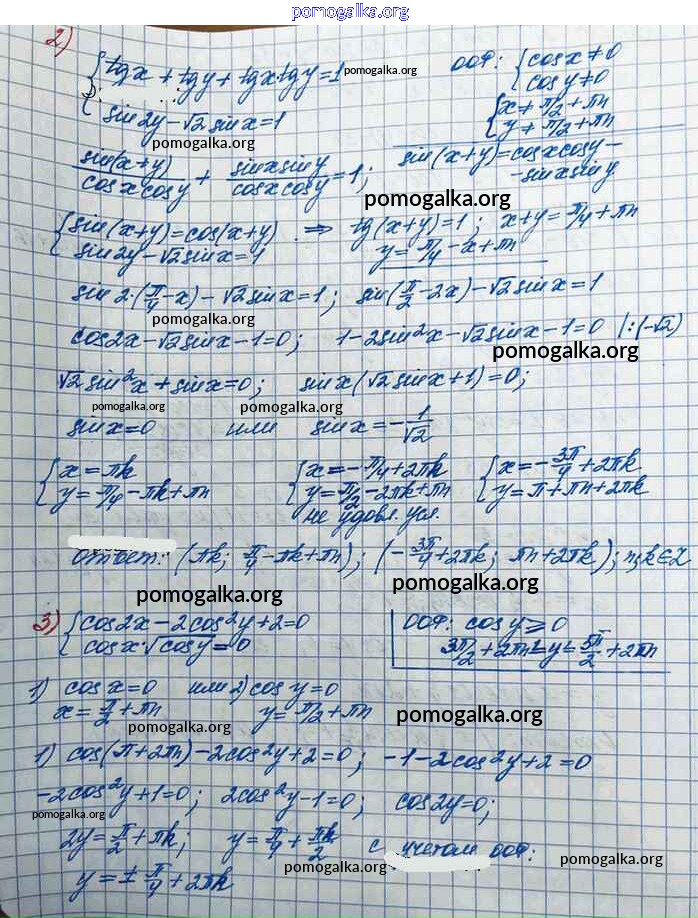 pomogalka.org
2) { tgx + tgy + tgx tgy = 1 pomogalka.org ООФ: { cosx ≠ 0
cosy ≠ 0
sin2y - √2 sinx = 1 { x ≠ π/2 + πn
y ≠ π/2 + πn
sin(x+y)/cosx cosy + sinx siny/cosx cosy = 1; sin(x+y) = cosx cosy -
- sinx siny.
pomogalka.org
{ sin(x+y) = cos(x+y) ⇒ tg(x+y) = 1; x+y = π/4 + πn
sin2y - √2 sinx = 1 y = π/4 - x + πn
sin2·(π/4 - x) - √2 sinx = 1; sin(π/2 - 2x) - √2 sinx = 1
pomogalka.org
cos2x - √2 sinx - 1 = 0; 1 - 2sin²x - √2 sinx - 1 = 0 |:(-√2)
pomogalka.org
√2 sin²x + sinx = 0; sinx(√2 sinx + 1) = 0;
pomogalka.org pomogalka.org
sinx = 0 или sinx = -1/√2
{ x = πk { x = -π/4 + 2πk { x = -3π/4 + 2πk
y = π/4 - πk + πn y = π/2 - 2πk + πn y = π + πn + 2πk
не удовл. усл.
ответ: (πk; π/4 - πk + πn); (-3π/4 + 2πk; πn + 2πk); n,k ∈ Z
pomogalka.org
3) { cos2x - 2cos²y + 2 = 0 ООФ: cosy ≥ 0
cosx·√cosy = 0 3π/2 + 2πn ≤ y ≤ 5π/2 + 2πn
1) cosx = 0 или 2) cosy = 0
x = π/2 + πn y = π/2 + πn pomogalka.org
pomogalka.org
1) cos(π + 2πn) - 2cos²y + 2 = 0; -1 - 2cos²y + 2 = 0
-2cos²y + 1 = 0; 2cos²y - 1 = 0; cos2y = 0;
pomogalka.org
2y = π/2 + πk; y = π/4 + πk/2 с учетом ООФ:
pomogalka.org pomogalka.org
y = ± π/4 + 2πk